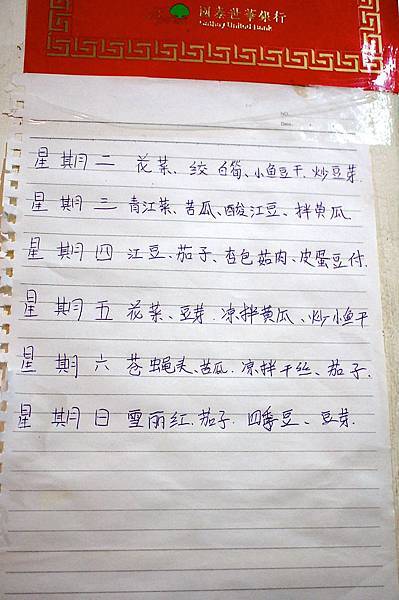 國泰世華銀行
Cathay United Bank
NO.
Date.
星期二 花菜、绞白筍、小鱼豆干、炒豆芽
星期三 青江菜、苦瓜、酸江豆、拌黄瓜
星期四 江豆、茄子、杏包菇肉、皮蛋豆付.
星期五 花菜、豆芽.凉拌黄瓜、炒小鱼干
星期六 苍蝇头、苦瓜.凉拌干丝、茄子.
星期日 雪丽红.茄子.四季豆、豆芽.